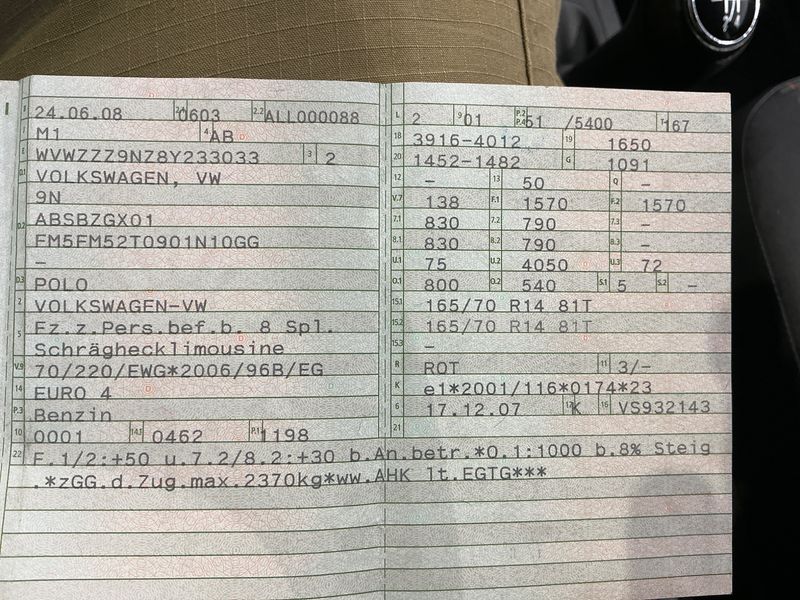 B 24.06.08 2.1 0603 2.2 ALL000088
J M1 4 AB
E WVWZZZ9NZ8Y233033 3 2
D.1 VOLKSWAGEN, VW
9N
D.2 ABSBZGX01
FM5FM52T0901N10GG
–
D.3 POLO
2 VOLKSWAGEN-VW
5 Fz.z.Pers.bef.b. 8 Spl.
Schräghecklimousine
V.9 70/220/EWG*2006/96B/EG
14 EURO 4
P.3 Benzin
10 0001 14.1 0462 P.1 1198
L 2 9 01 P.2 P.4 51 /5400 T 167
18 3916-4012 19 1650
20 1452-1482 G 1091
12 – 13 50 Q –
V.7 138 F.1 1570 F.2 1570
7.1 830 7.2 790 7.3 –
8.1 830 8.2 790 8.3 –
U.1 75 U.2 4050 U.3 72
O.1 800 O.2 540 S.1 5 S.2 –
15.1 165/70 R14 81T
15.2 165/70 R14 81T
15.3 –
R ROT 11 3/–
K e1*2001/116*0174*23
6 17.12.07 17 K 16 VS932143
21
22 F.1/2:+50 u.7.2/8.2:+30 b.An.betr.*O.1:1000 b.8% Steig
.*zGG.d.Zug.max.2370kg*ww.AHK lt.EGTG***